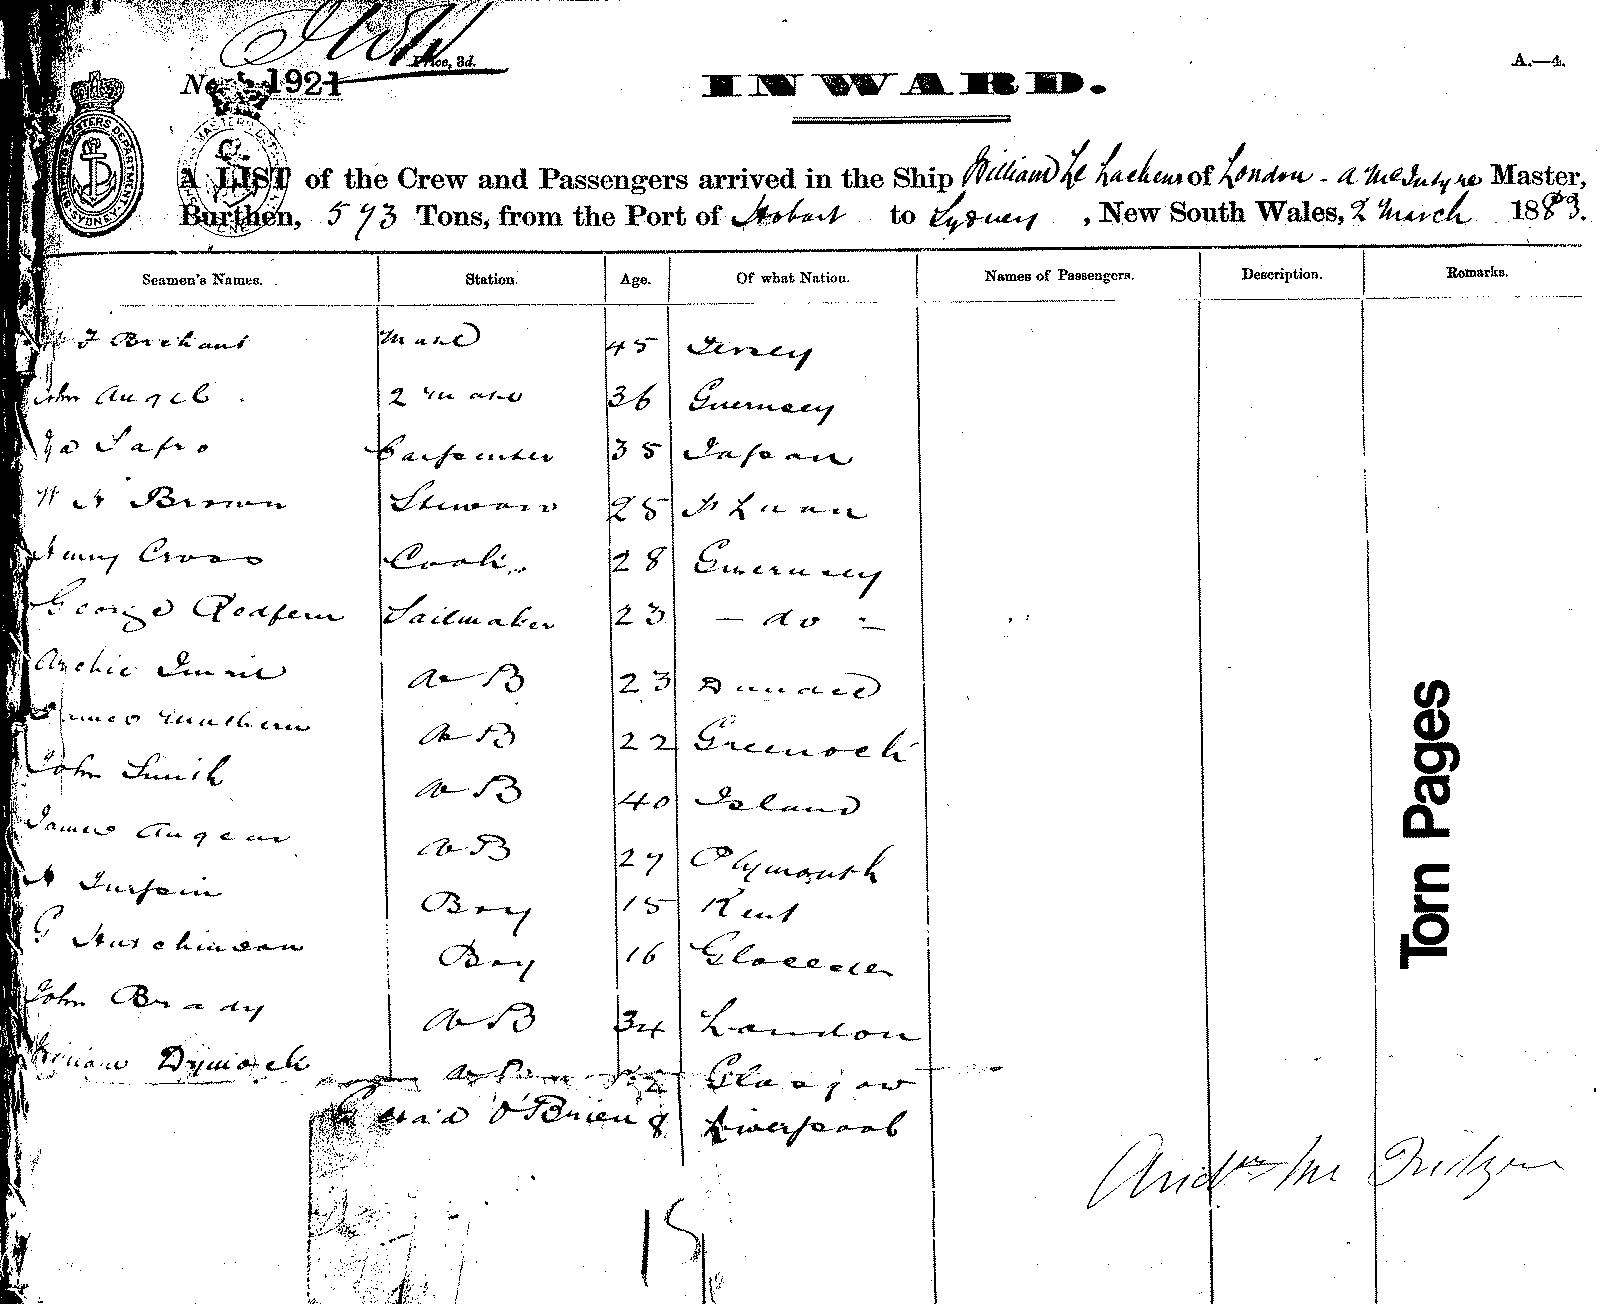 Price, 3d.
A.—4.
No. 1921
INWARD.
A LIST of the Crew and Passengers arrived in the Ship William Le Lacheur of London - A McIntyre Master,
Burthen, 573 Tons, from the Port of Hobart to Sydney, New South Wales, 2 March 1883.
Seamen's Names. Station. Age. Of what Nation. Names of Passengers. Description. Remarks.
Mate 45 Jersey
John Angel 2 Mate 36 Guernsey
Carpenter 35 Japan
W H Brown Steward 25
Henry Cross Cook 28 Guernsey
George Redfern Sailmaker 23 - do -
Archie AB 23 Dundee
James AB 22 Greenock
John Smith AB 40 Island
James Angear AB 27 Plymouth
H Turpin Boy 15 Kent
G Hutchinson Boy 16 Glocester
John Brady AB 34 London
William Dymock AB Glasgow
O'Brien 8 Liverpool
15
Torn Pages